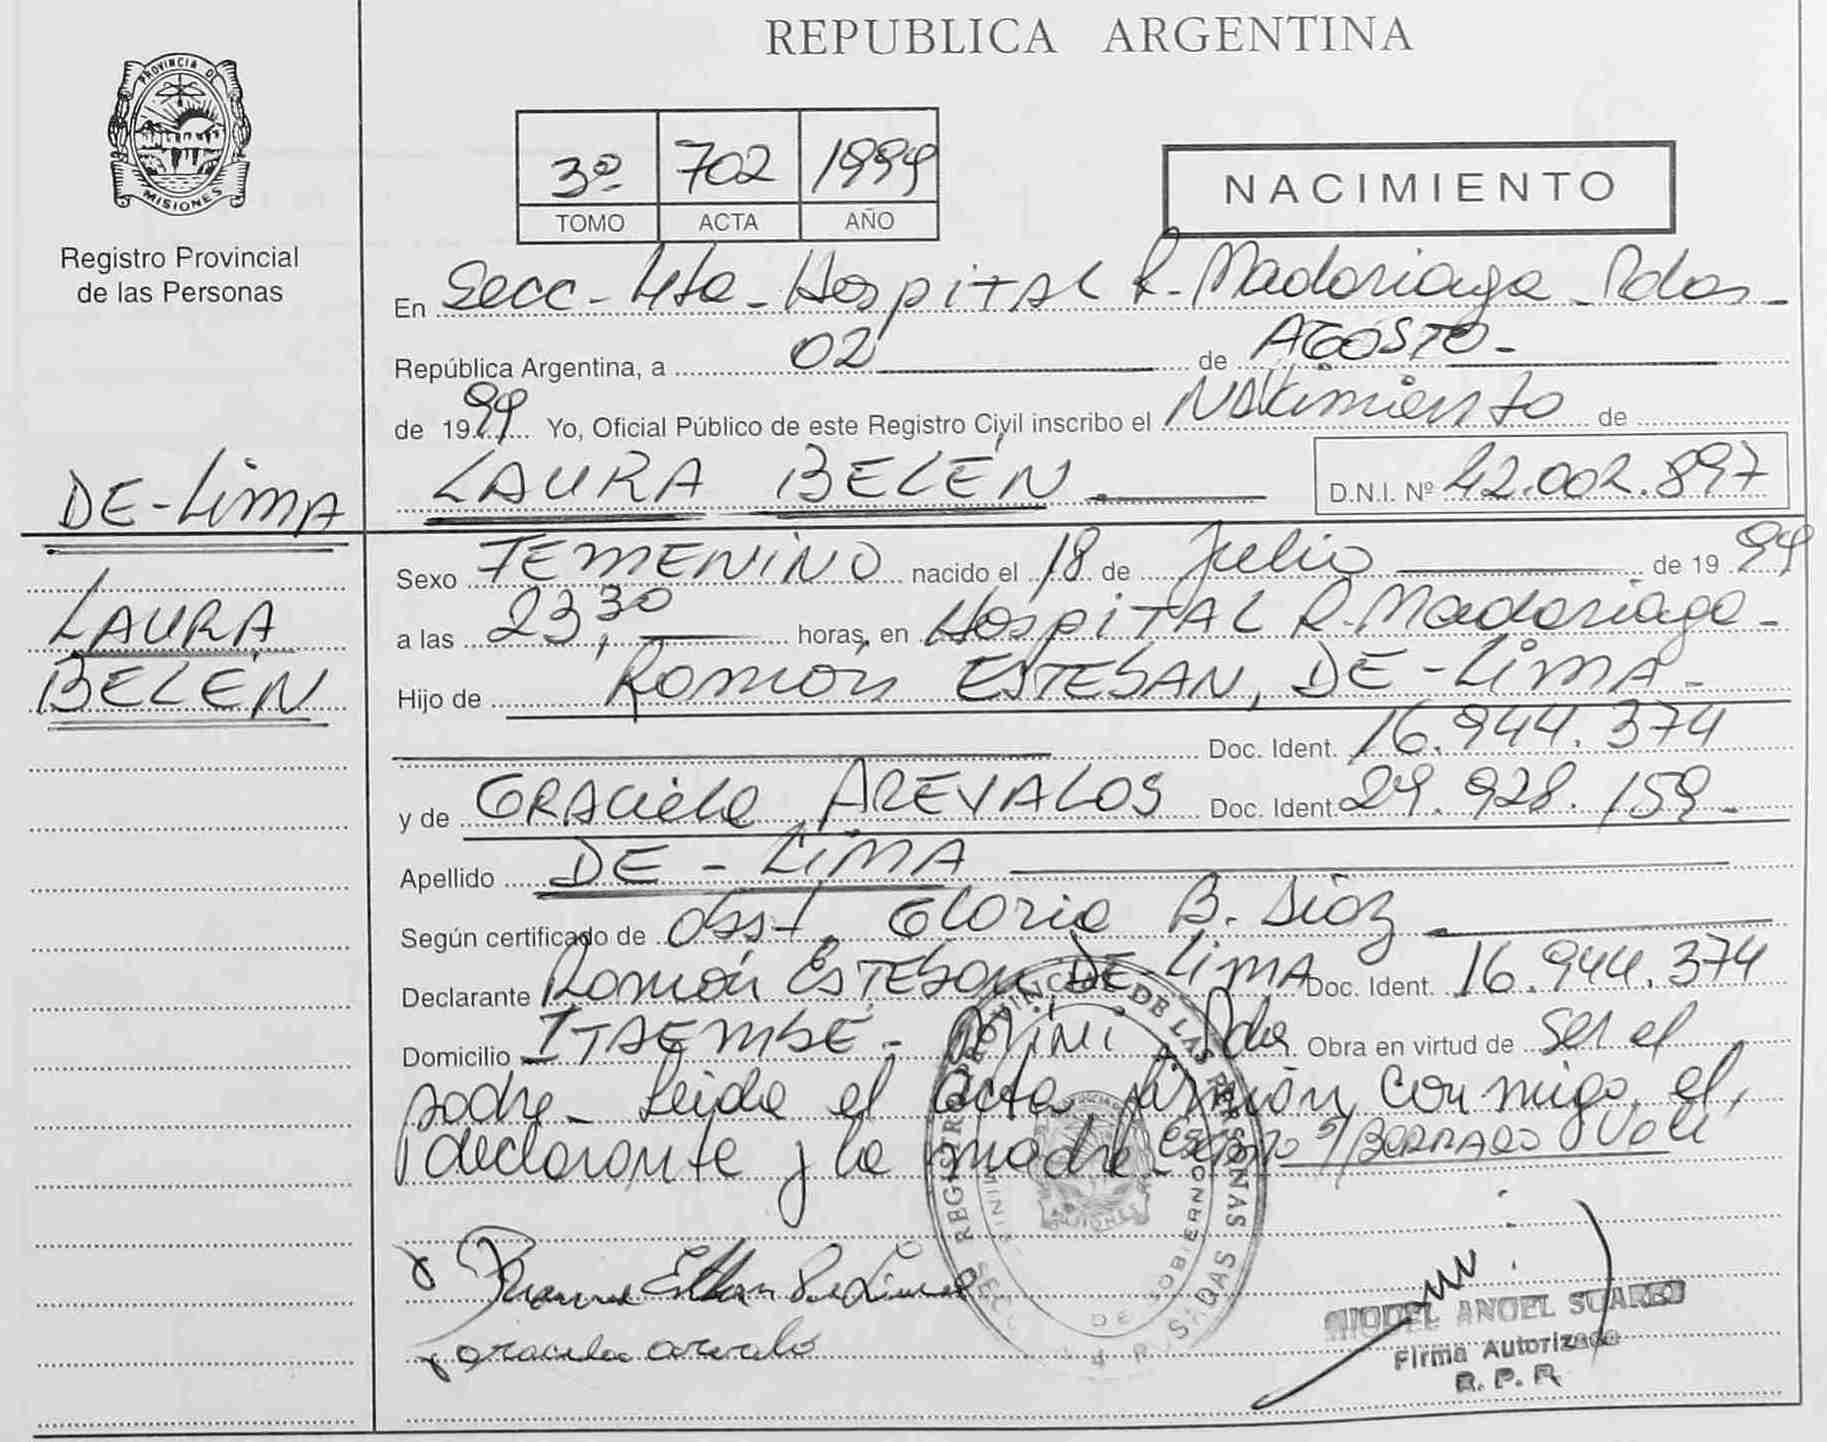 REPUBLICA ARGENTINA
PROVINCIA DE
MISIONES
Registro Provincial
de las Personas
3º 702 1999
TOMO ACTA AÑO
NACIMIENTO
En Secc - 4ta - Hospital R. Madariaga - Pdas -
República Argentina, a 02 de AGOSTO -
de 1999 Yo, Oficial Público de este Registro Civil inscribo el Nacimiento de
LAURA BELÉN D.N.I. Nº 42.002.897
DE-LimA
LAURA
BELÉN
Sexo FEMENINO nacido el 18 de Julio de 1999
a las 23,30 horas, en Hospital R. Madariaga -
Hijo de Ramón ESTEBAN, DE-LimA -
Doc. Ident. 16.944.374
y de GRACiela AREVALOS Doc. Ident. 29.928.159 -
Apellido DE - LiMA
Según certificado de Obst. Gloria B. Diaz
Declarante Ramón ESTEBAN DE-LiMA Doc. Ident. 16.944.374
Domicilio ITAEMBÉ - Miní - Pdas Obra en virtud de ser el
padre - Leida el acta firman conmigo el
declarante y la madre -
Esteban De Lima
graciela arevalo
REGISTRO PROVINCIAL DE LAS PERSONAS
DE GOBIERNO
MIGUEL ANGEL SUAREZ
Firma Autorizada
R. P. R